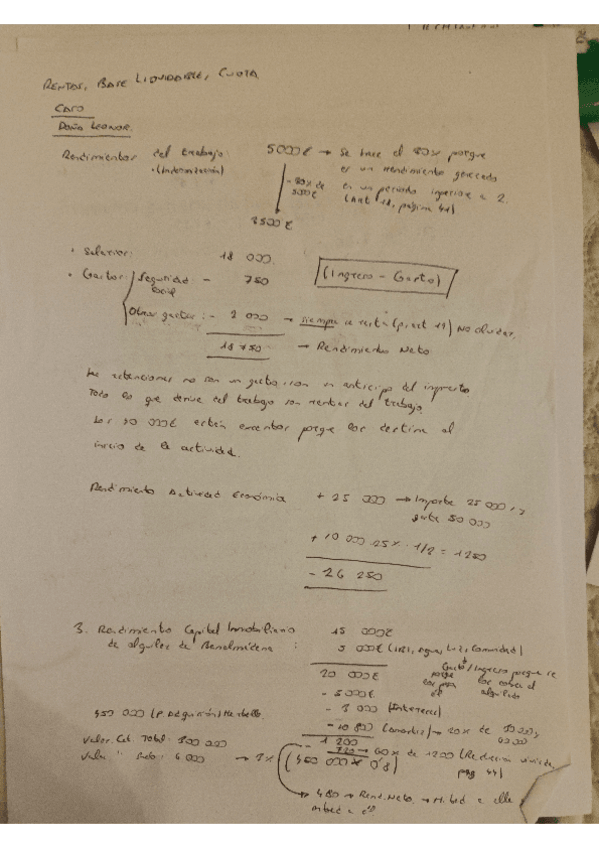 RENTAS, BASE LIQUIDABLE, CUOTA
CASO
DOÑA LEONOR.
Rendimientos del trabajo: 5000€ → Se hace el 80% porque
• (Indemnización) es un rendimiento generado
en un periodo inferior a 2.
(Art 18, página 41)
3500€
• Salarios: 18 000.
• Gastos: Seguridad Social - 750 (Ingreso - Gasto)
Otros gastos: - 2 000 → siempre a restar (p, art 19) No olvidar.
18 750 → Rendimiento Neto
las retenciones no son un gasto, son un anticipo del impuesto
Todo lo que derive del trabajo son rentas del trabajo
Los 50 000€ están exentos porque los destina al
inicio de la actividad.
Rendimiento Actividad Económica + 25 000 → Importe 25 000,
gasta 50 000
+ 10 000 25% · 1/2 = 1250
- 26 250
3. Rendimiento Capital Inmobiliario 15 000€
de alquiler de Benalmádena : 5 000€ (IBI, Agua, Luz, Comunidad)
Gasto/Ingreso porque se
20 000€
- 5000€
450 000 (P. Adquisición - 3 000 (Intereses)
- 10 800 (Amortiz)
Valor. Cat. Total: 300 000 1 200
Valor " Suelo: 6 000 → 3% (450 000 x 0'8) 720 → 60% de 1200 (Reducción vivienda
pag 44)
→ 480 → Rend. Neto → Mitad a ella
Mitad a él